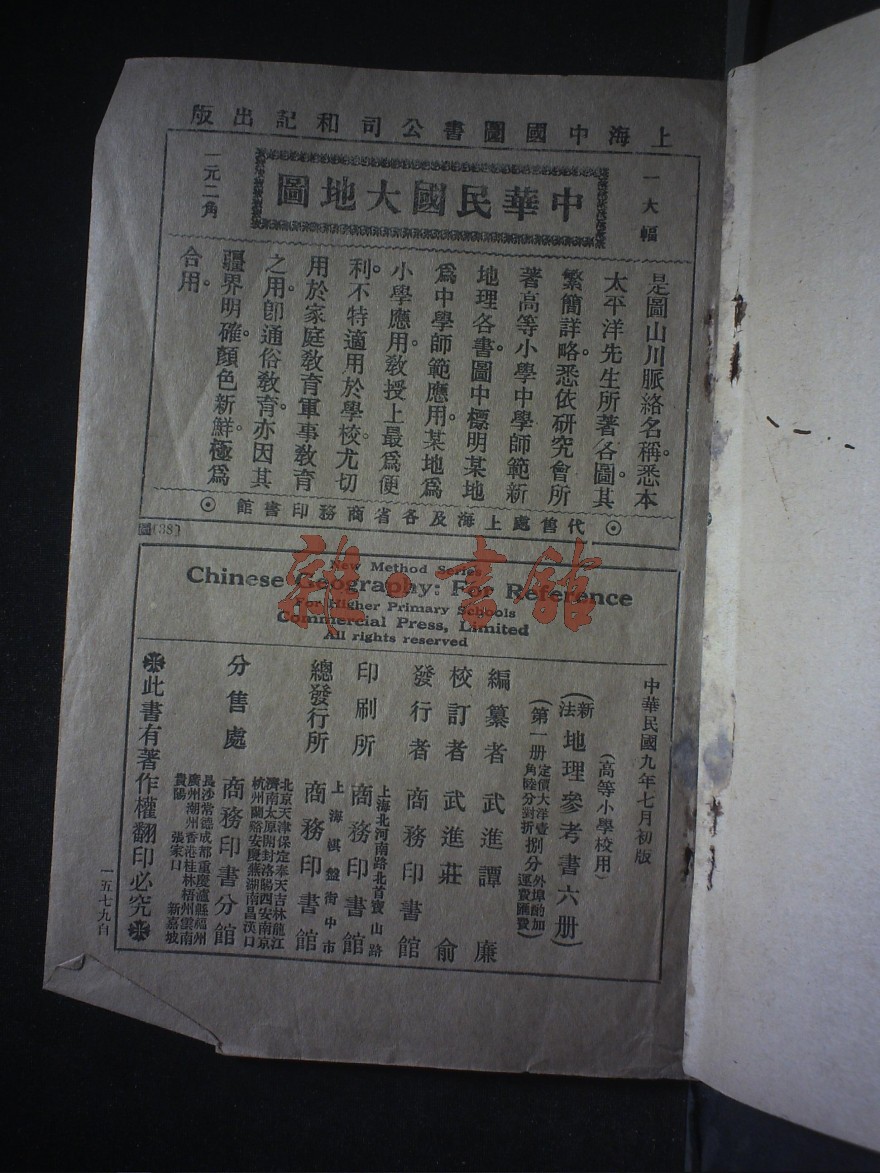 上海中國圖書公司和記出版
一大幅
中華民國大地圖
一元二角
是圖山川脈絡名稱。悉本
太平洋先生所著各圖。其
繁簡詳略。悉依研究會所
著高等小學中學師範新
地理各書。圖中標明某地
爲中學師範應用。某地爲
小學應用。教授上最爲便
利。不特適用於學校。尤切
用於家庭教育軍事教育
之用。卽通俗教育。亦因其
疆界明確。顏色新鮮。極爲
合用。
⊙代售處上海及各省商務印書館⊙
圖(38)
New Method Series
Chinese Geography: For Reference
For Higher Primary Schools
Commercial Press, Limited
All rights reserved
雜·書館
中華民國九年七月初版
(高等小學校用)
(新法地理參考書六册)
(第一册定價大洋壹角陸分對折捌分外埠酌加運費匯費)
編纂者 武進譚廉
校訂者 武進莊俞
發行者 商務印書館
印刷所 上海北河南路北首寶山路 商務印書館
總發行所 上海棋盤街中市 商務印書館
分售處 商務印書分館
北京天津保定奉天吉林龍江
濟南太原開封洛陽西安南京
杭州蘭谿安慶蕪湖南昌漢口
長沙常德成都重慶瀘縣福州
廣州潮州香港桂林梧州雲南
貴陽 張家口 新嘉坡
此書有著作權翻印必究
一五七九自